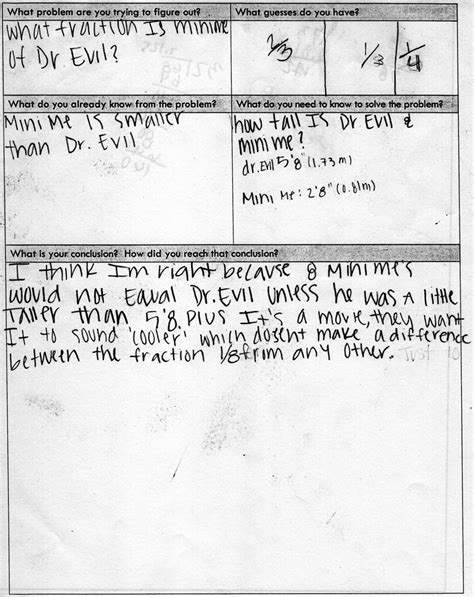 What problem are you trying to figure out?
What fraction Is minime
of Dr. Evil?
What guesses do you have?
2/3
1/8
1/4
What do you already know from the problem?
Mini Me Is smaller
than Dr. Evil
What do you need to know to solve the problem?
how tall Is Dr Evil &
mini me?
dr. Evil 5'8" (1.73 m)
Mini Me: 2'8" (0.81m)
What is your conclusion? How did you reach that conclusion?
I think Im right because 8 Mini me's
would not Equal Dr. Evil unless he was A little
Taller than 5'8. Plus It's a movie, they want
It to sound 'cooler' which dosent make a difference
between the fraction 1/8 from any other.